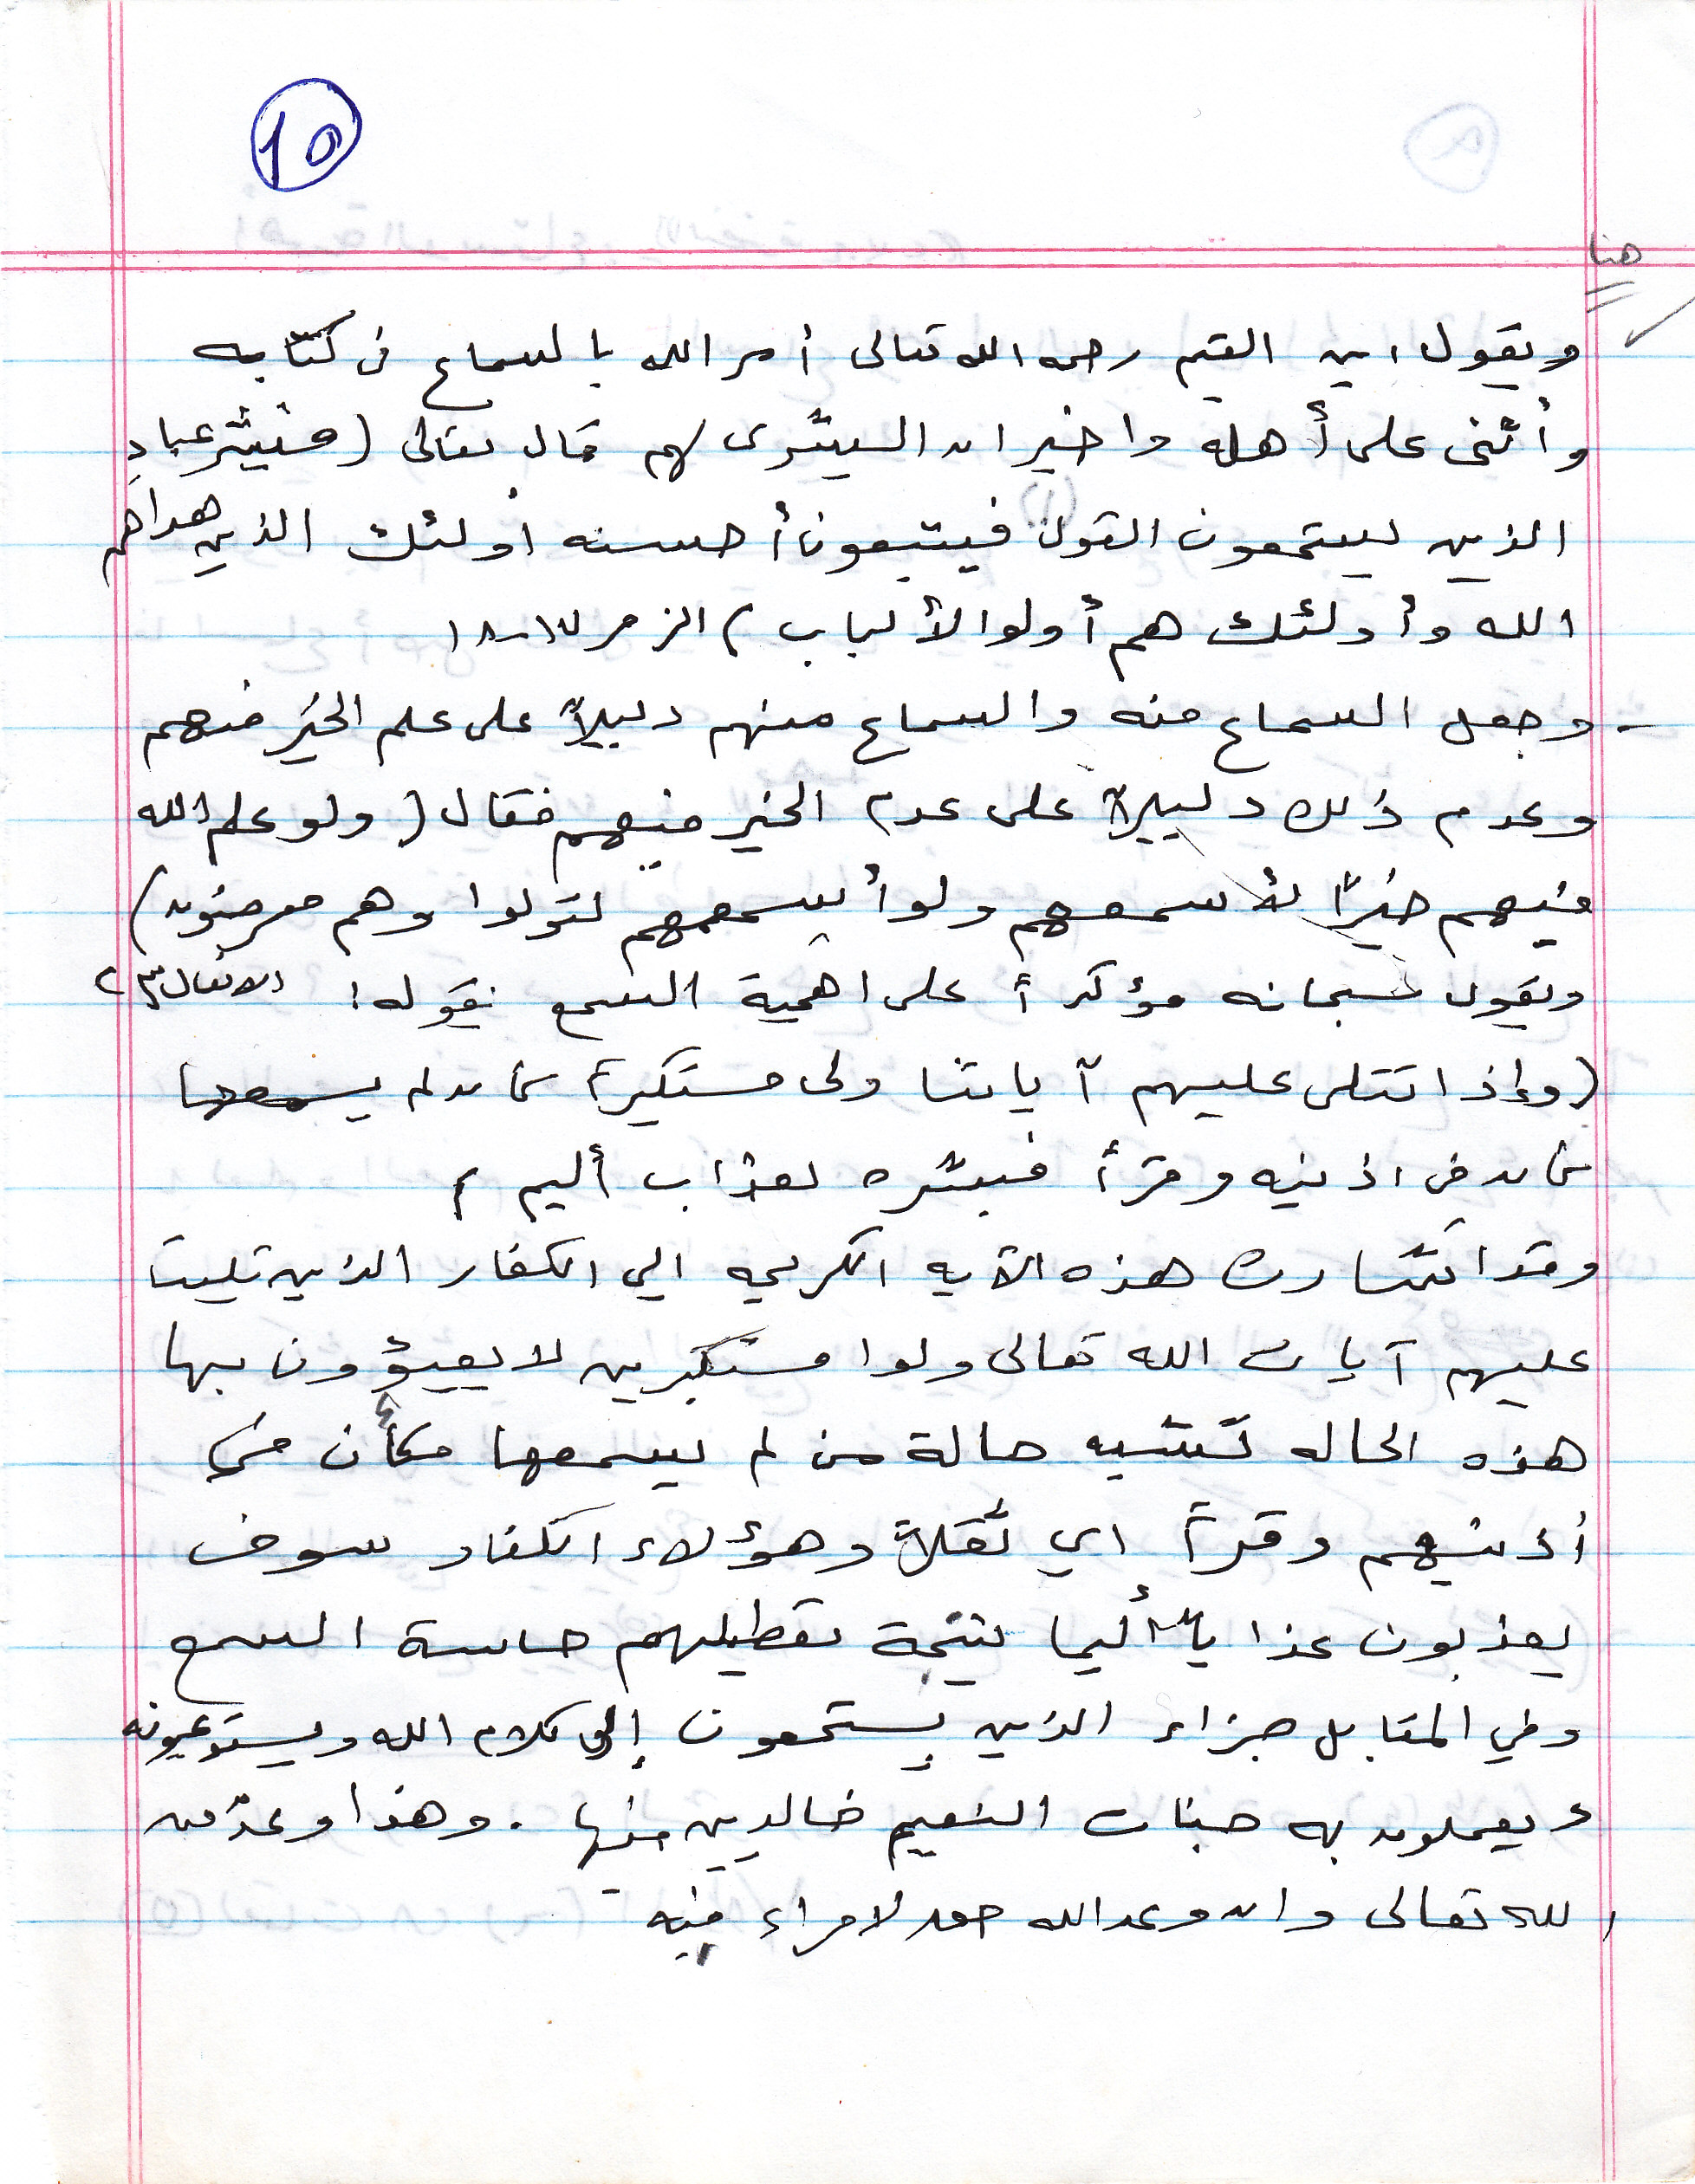 ١٥
هنا
ويقول ابن القيم رحمه الله تعالى أمر الله بالسماع في كتابه
وأثنى على أهله واخبر ان البشرى لهم قال تعالى (فبشر عبادِ
الذين يستمعون القول فيتبعون أحسنه أولئك الذين هداهم
(١)
الله وأولئك هم أولوا الألباب) الزمر ١٧-١٨
- وجعل السماع منه والسماع منهم دليلاً على علم الخير فيهم
وعدم ذلك دليلاً على عدم الخير فيهم فقال (ولو علم الله
فيهم خيراً لأسمعهم ولو أسمعهم لتولوا وهم معرضون)
ويقول سبحانه مؤكداً على اهمية السمع بقوله: الانفال ٢٣
(وإذا تتلى عليهم آياتنا ولى مستكبراً كان لم يسمعها
كان في اذنيه وقراً فبشره بعذاب أليم)
وقد اشارت هذه الآيه الكريمه الي الكفار الذين تليت
عليهم آيات الله تعالى ولوا مستكبرين لا يعبؤون بها
هذه الحاله تشبه حالة من لم يسمعها فكأن في
أذنيهم وقراً اي ثقلاً وهؤلاء الكفار سوف
يعذبون عذاباً أليما نتيجة تعطيلهم حاسة السمع
وفي المقابل جزاء الذين يستمعون إلى كلام الله ويستوعبونه
ويعملون به جنات النعيم خالدين فيها . وهذا وعدٌ من
الله تعالى وان وعد الله حق لا مراء فيه